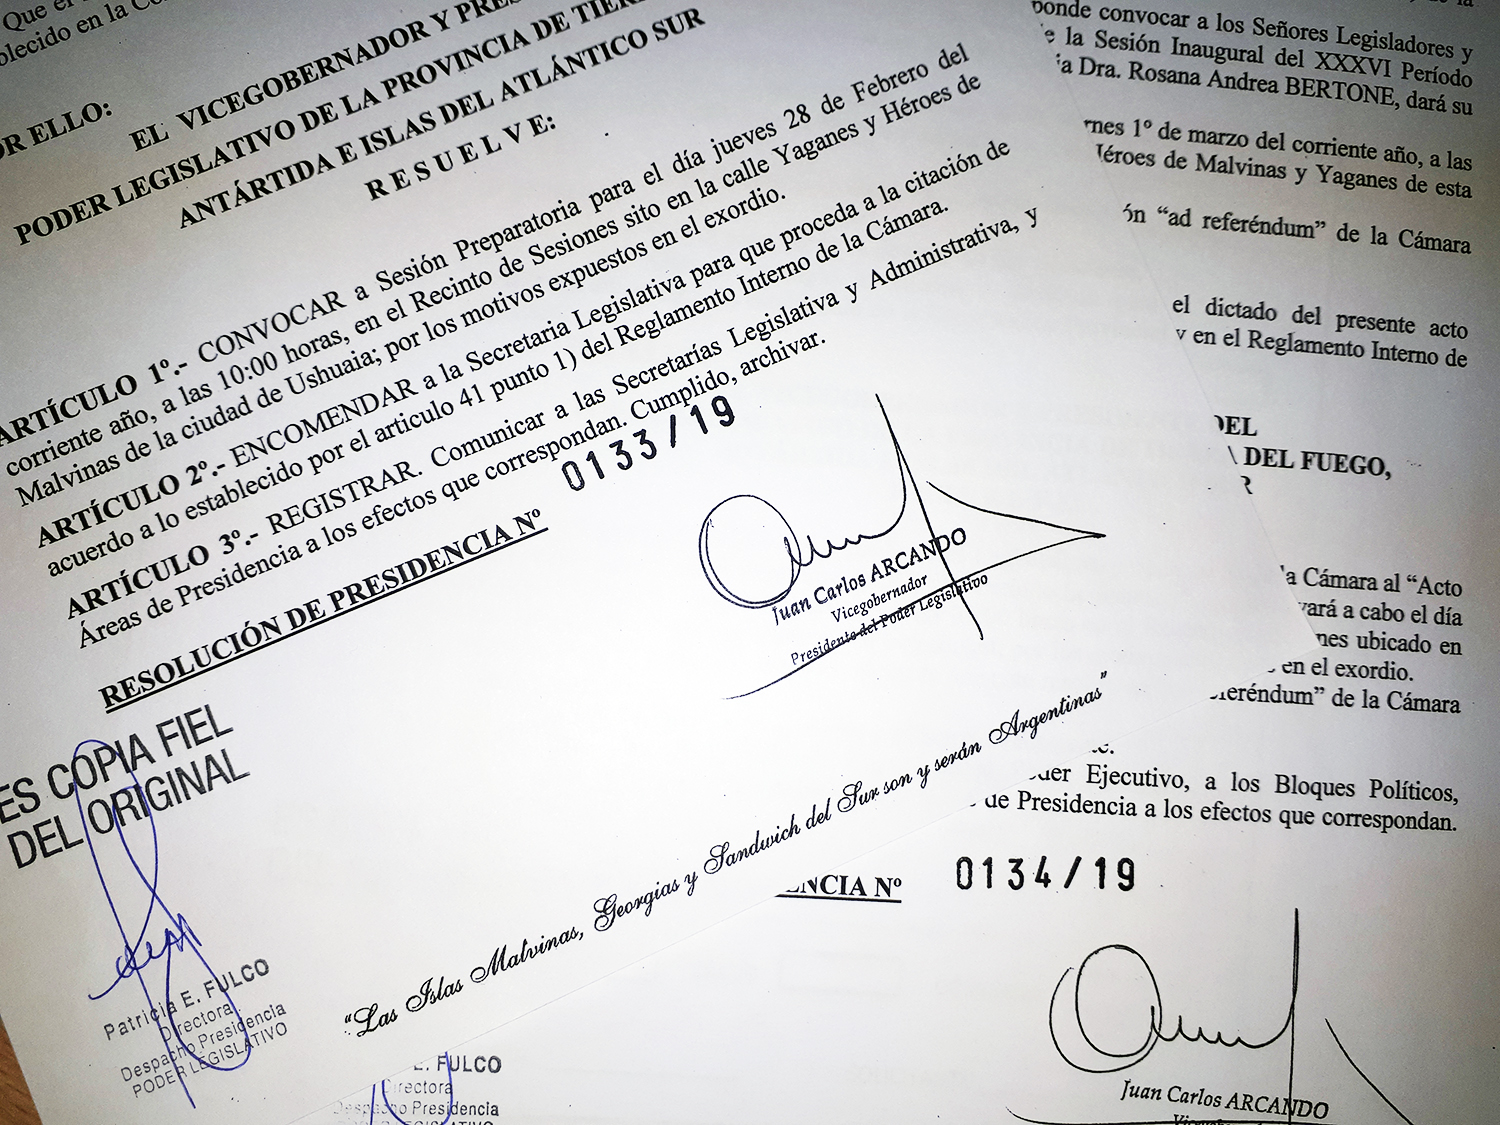 Que el
blecido en la Co
OR ELLO:
EL VICEGOBERNADOR Y PRES
PODER LEGISLATIVO DE LA PROVINCIA DE TIER
ANTÁRTIDA E ISLAS DEL ATLÁNTICO SUR
R E S U E L V E:
ARTÍCULO 1º.- CONVOCAR a Sesión Preparatoria para el día jueves 28 de Febrero del
corriente año, a las 10:00 horas, en el Recinto de Sesiones sito en la calle Yaganes y Héroes de
Malvinas de la ciudad de Ushuaia; por los motivos expuestos en el exordio.
ARTÍCULO 2º.- ENCOMENDAR a la Secretaria Legislativa para que proceda a la citación de
acuerdo a lo establecido por el articulo 41 punto 1) del Reglamento Interno de la Cámara.
ARTÍCULO 3º.- REGISTRAR. Comunicar a las Secretarías Legislativa y Administrativa, y
Áreas de Presidencia a los efectos que correspondan. Cumplido, archivar.
RESOLUCIÓN DE PRESIDENCIA Nº 0133/19
Juan Carlos ARCANDO
Vicegobernador
Presidente del Poder Legislativo
ES COPIA FIEL
DEL ORIGINAL
Patricia E. FULCO
Directora
Despacho Presidencia
PODER LEGISLATIVO
"Las Islas Malvinas, Georgias y Sandwich del Sur son y serán Argentinas"
ponde convocar a los Señores Legisladores y
e la Sesión Inaugural del XXXVI Período
a Dra. Rosana Andrea BERTONE, dará su
rnes 1º de marzo del corriente año, a las
Héroes de Malvinas y Yaganes de esta
ón “ad referéndum” de la Cámara
el dictado del presente acto
y en el Reglamento Interno de
DEL
A DEL FUEGO,
R
la Cámara al “Acto
vará a cabo el día
nes ubicado en
en el exordio.
referéndum” de la Cámara
der Ejecutivo, a los Bloques Políticos,
de Presidencia a los efectos que correspondan.
ENCIA Nº 0134/19
Juan Carlos ARCANDO
E. FULCO
Directora
Despacho Presidencia